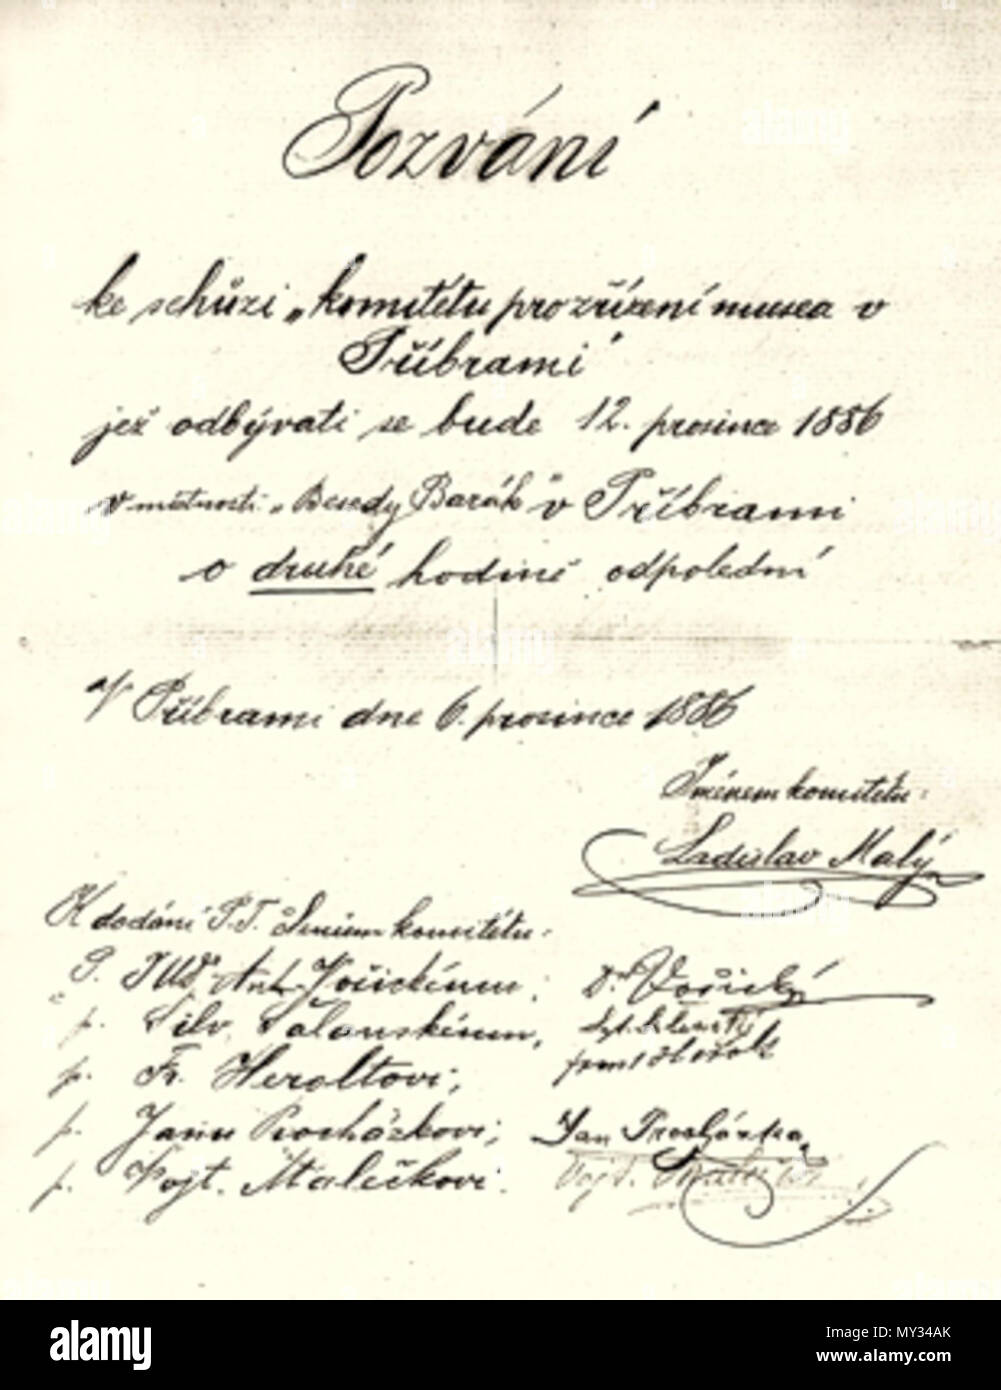 Pozvání
ke schůzi „komitétu pro zřízení musea v
Příbrami"
jež odbývati se bude 12. prosince 1886
v místnosti „Besedy Barák" v Příbrami
o druhé hodině odpolední
V Příbrami dne 6. prosince 1886
Jménem komitétu:
Ladislav Malý
K dodání P.T. členům komitétu:
P. JUDr Ant. Vořickému; Dr Vořický
p. Silv. 
p. Fr. Heroltovi;
p. Janu Procházkovi; Jan Procházka
p. Vojt. Malečkovi. Vojt.
alamy
Image ID: MY34AK
www.alamy.com